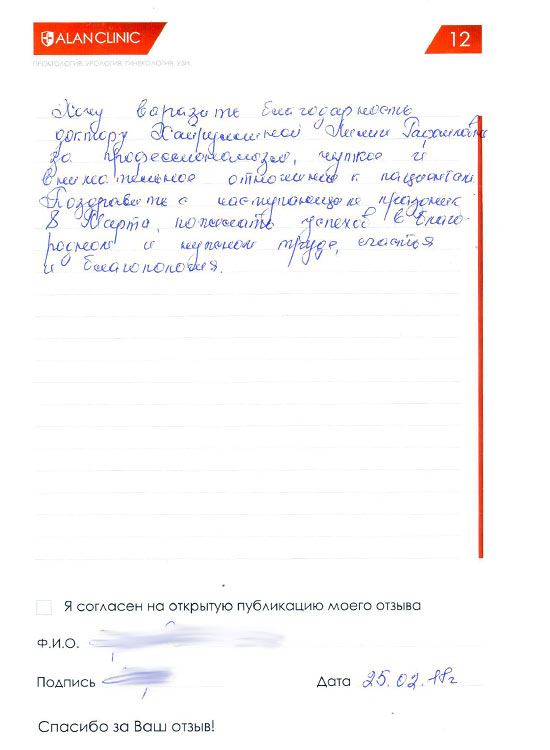 ALANCLINIC
12
ПРОКТОЛОГИЯ. УРОЛОГИЯ. ГИНЕКОЛОГИЯ. УЗИ.
Хочу выразить благодарность
доктору Хайрулиной Лилии
за профессионализм, чуткое и
внимательное отношение к пациентам.
Поздравить с наступающим праздник
8 Марта, пожелать успехов в благо-
родном и нужном труде, счастья
и благополучия.
Я согласен на открытую публикацию моего отзыва
Ф.И.О.
Подпись
Дата 25.02.
Спасибо за Ваш отзыв!